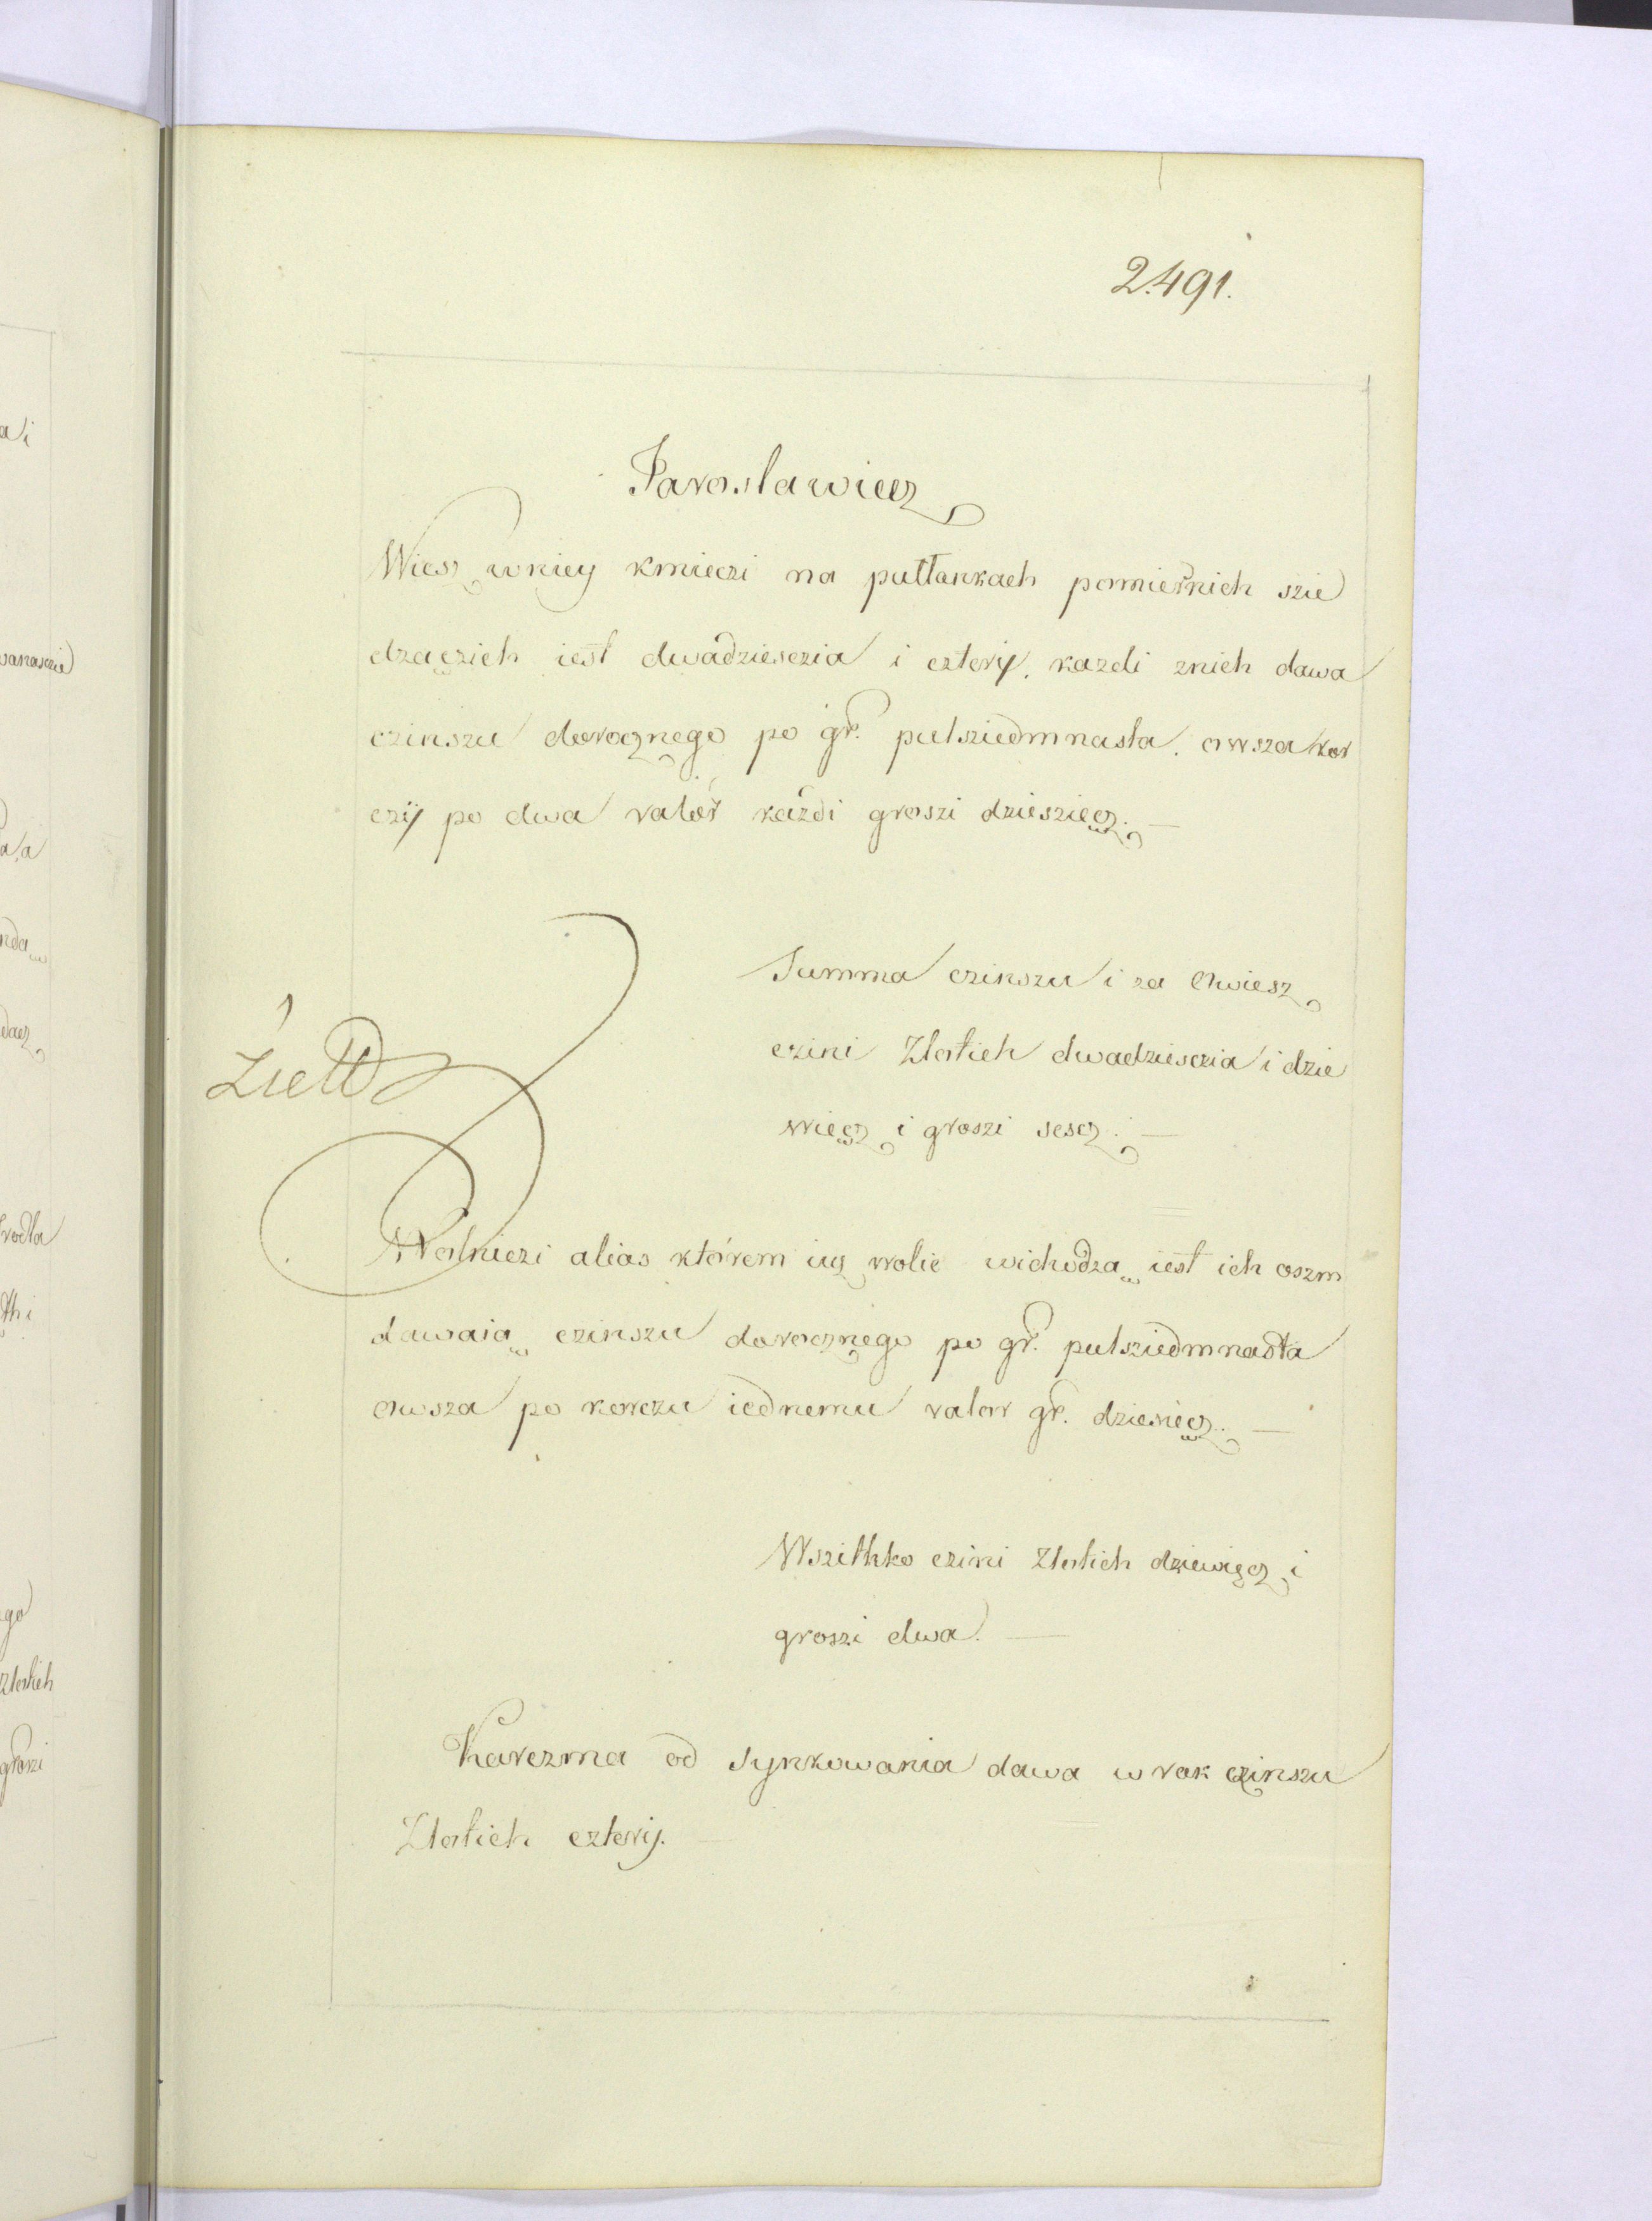 2.491.
Jaroslawiecz
Wiesz wniey kmieczi na pułłankach pomiernich szie
dzączich iest dwadziesczia i cztery, kazdi znich dawa
czinszu dorocznego po gr. pulsziedmnasta. owsza kor
czÿ po dwa valor każdi groszi dziesziecz. —
Summa czinszu i za Owiesz
czini Złotich dwadziesczia i dzie
więcz i groszi sescz. —
Wolniczi alias którem iuz wolie wichodzą iest ich oszm
dawaią czinszu dorocznego po gr. pulsziedmnasta
owsza po korczu iednemu valor gr. dziesięcz. —
Wszithko czini Złotich dziewięcz i
groszi dwa. —
Karczma od synkowania dawa w rok czinszu
Złotich cztery.